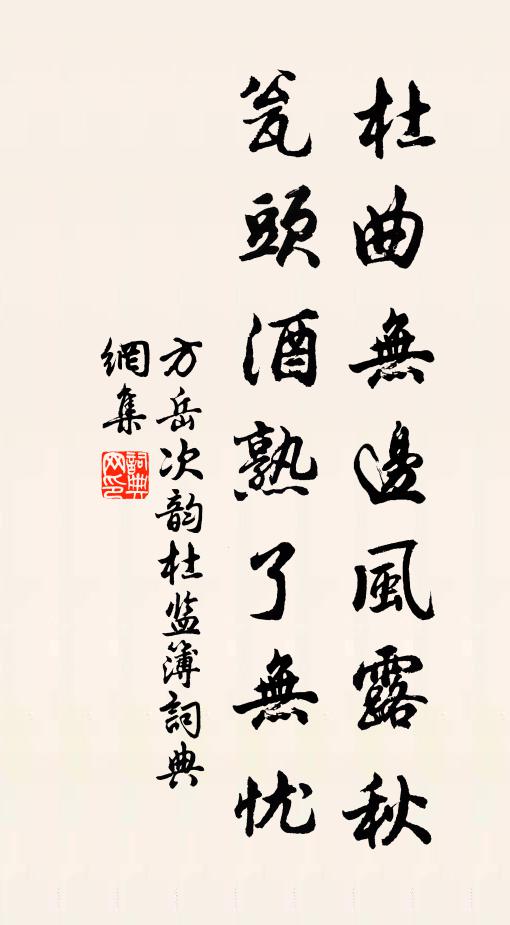 杜曲無邊風露秋
瓮頭酒熟了無忧
方岳次韵杜监簿詞典
網集
詞典网印